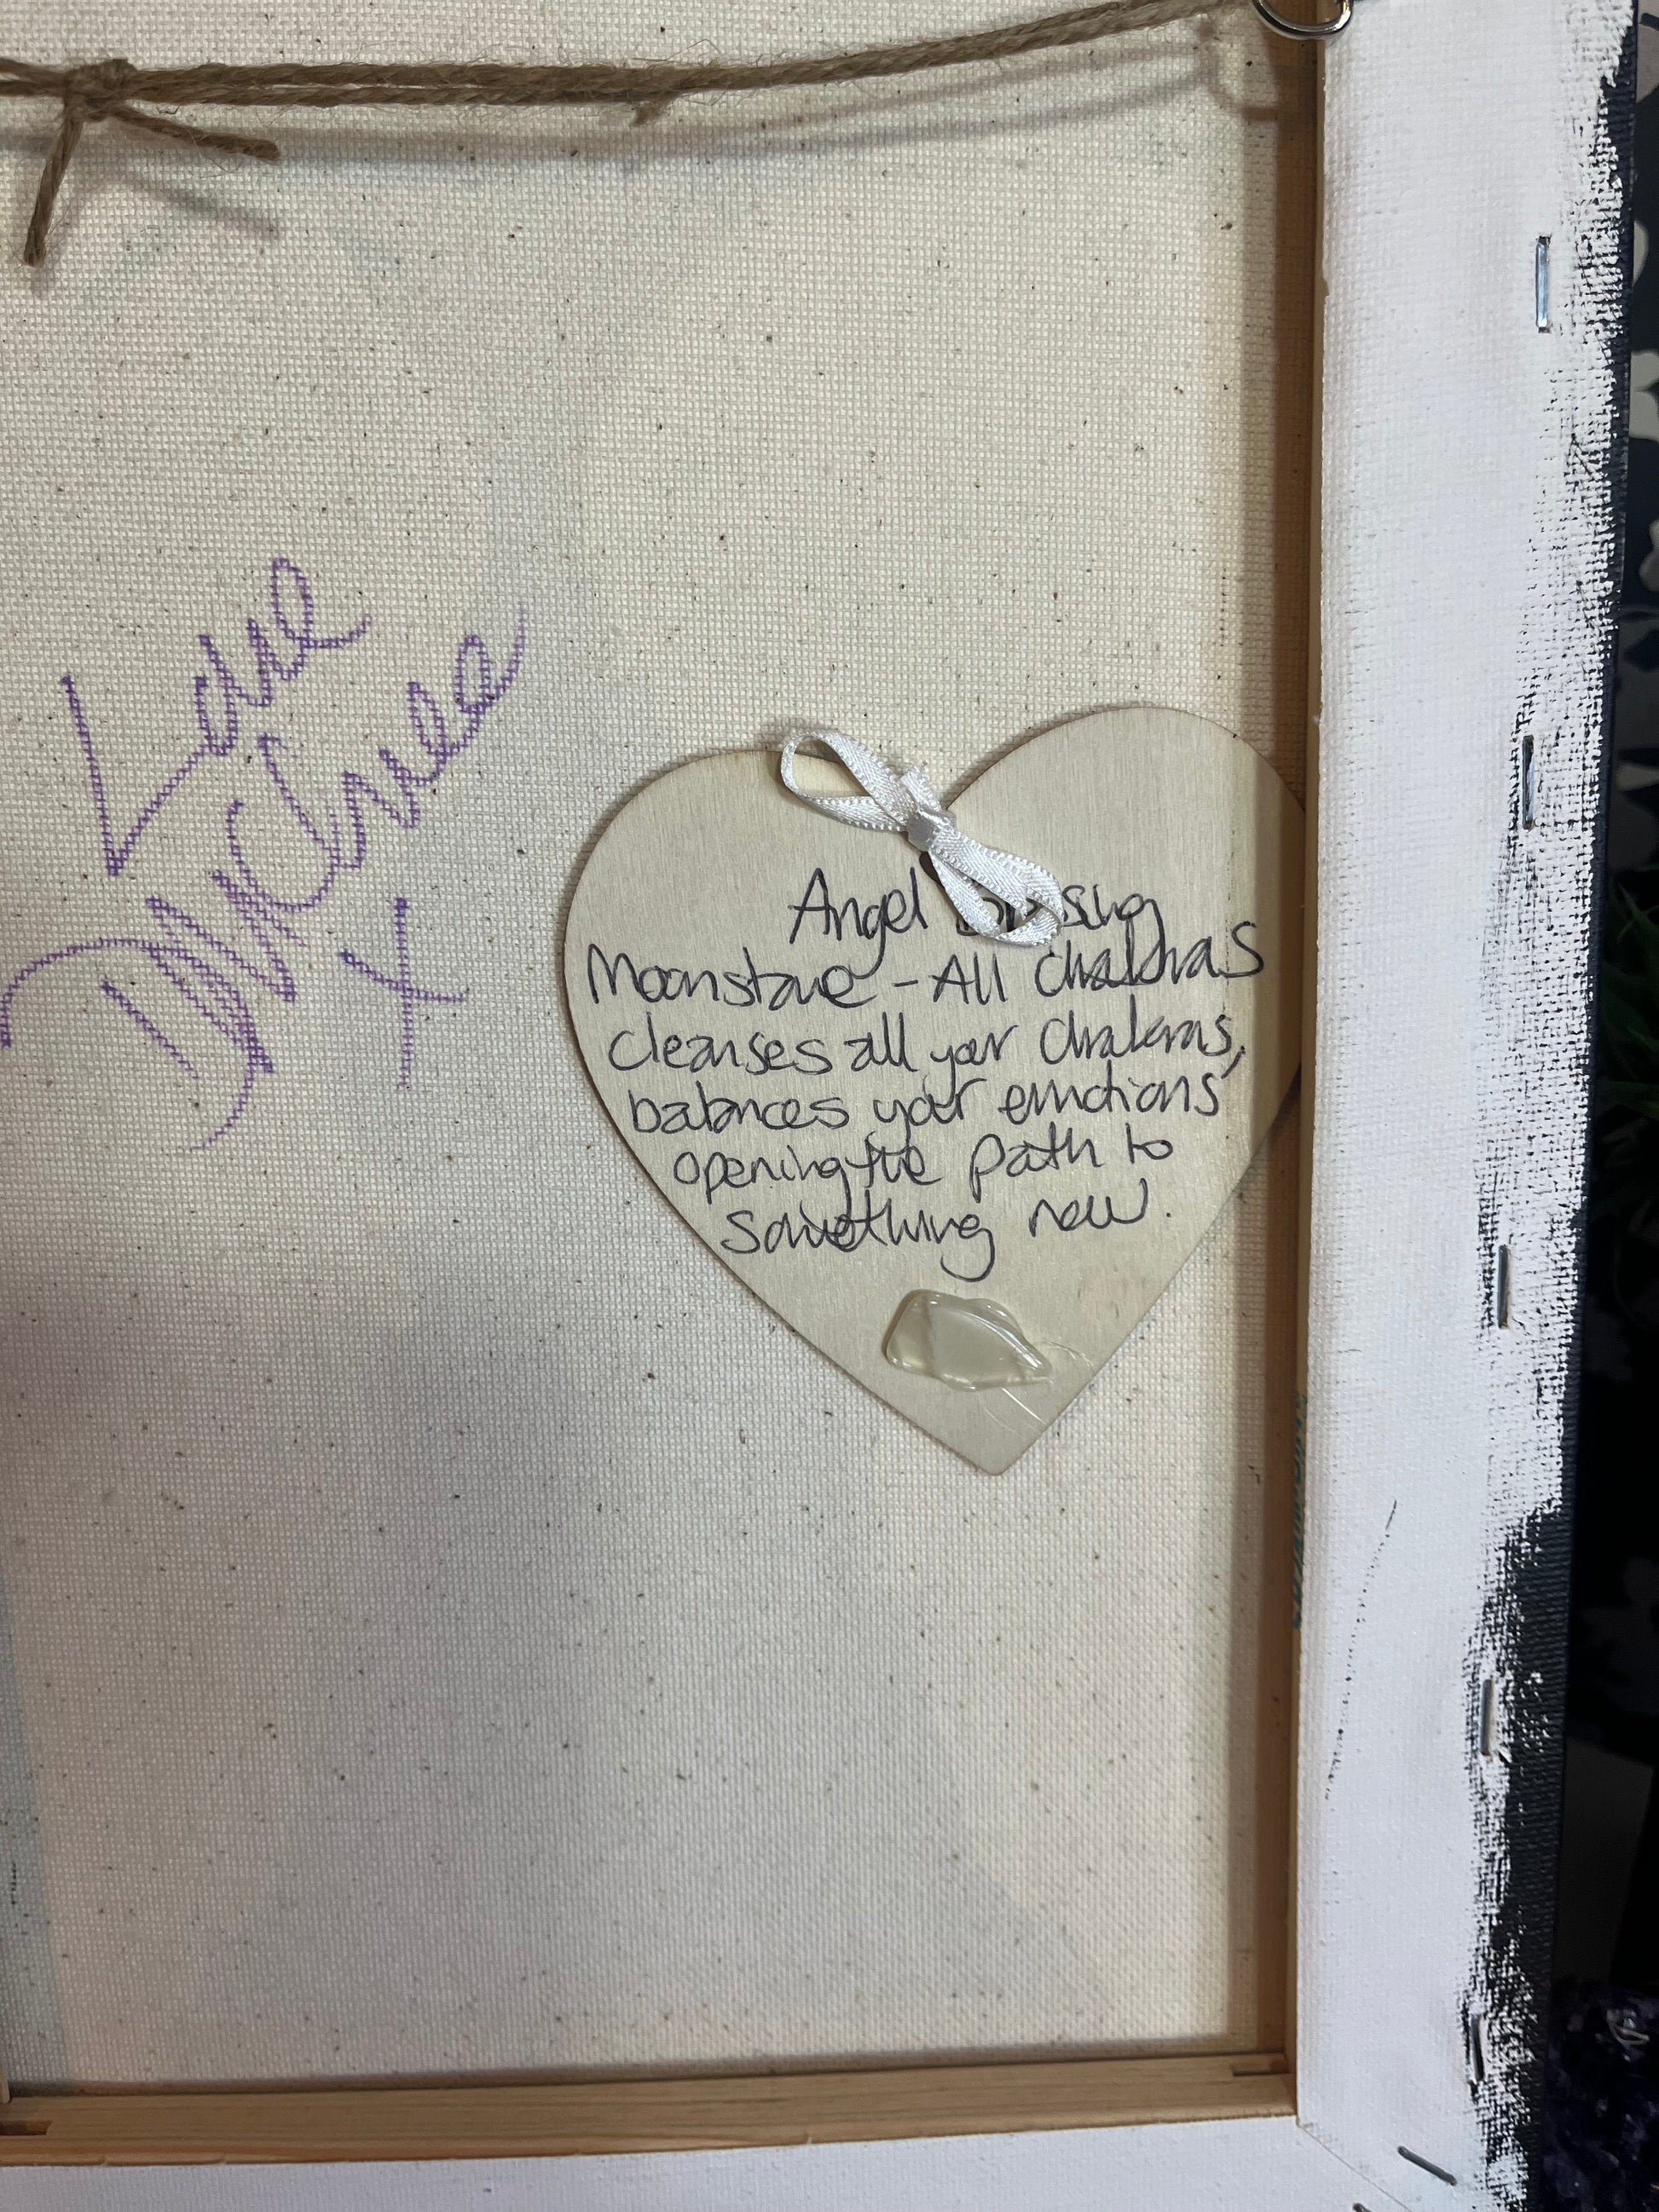 Love
x
Angel
Moonstone - All Chakras
Cleanses all your Chakras,
balances your emotions
opening the path to
something new.